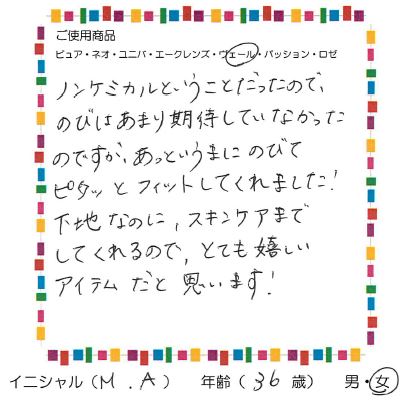 ご使用商品
ピュア・ネオ・ユニバ・エークレンズ・ヴェール・パッション・ロゼ
ノンケミカルということだったので、
のびはあまり期待していなかった
のですが、あっというまにのびて
ピタッとフィットしてくれました!
下地なのに、スキンケアまで
してくれるので、とても嬉しい
アイテムだと思います!
イニシャル(M.A) 年齢(36歳) 男・女